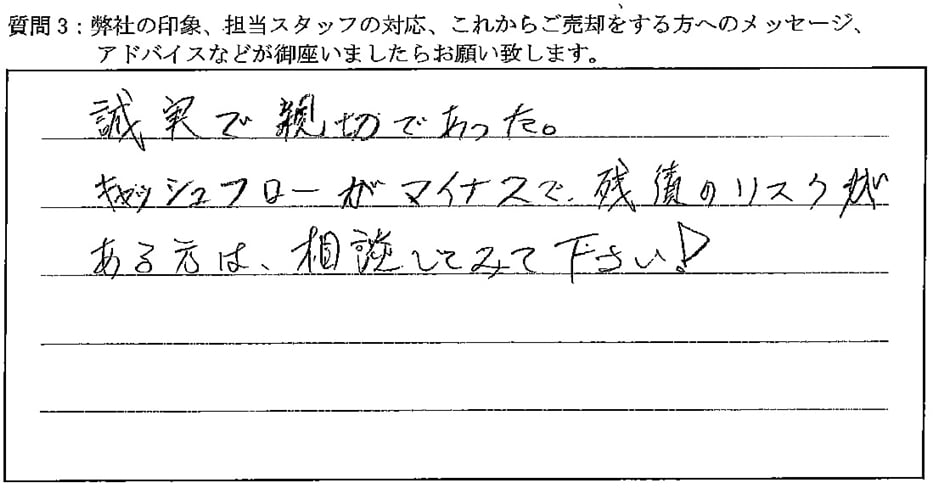 質問3:弊社の印象、担当スタッフの対応、これからご売却をする方へのメッセージ、
アドバイスなどが御座いましたらお願い致します。
誠実で親切であった。
キャッシュフローがマイナスで、残債のリスクが
ある方は、相談してみて下さい!